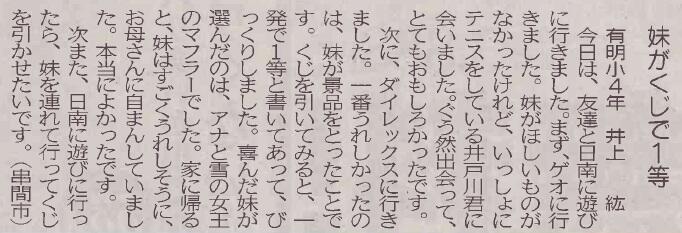 妹がくじで1等
有明小4年 井上 紘
今日は、友達と日南に遊び
に行きました。まず、ゲオに行
きました。妹がほしいものが
なかったけれど、いっしょに
テニスをしている井戸川君に
会いました。ぐう然出会って、
とてもおもしろかったです。
次に、ダイレックスに行き
ました。一番うれしかったの
は、妹が景品をとったことで
す。くじを引いてみると、一
発で1等と書いてあって、び
っくりしました。喜んだ妹が
選んだのは、アナと雪の女王
のマフラーでした。家に帰る
と、妹はすごくうれしそうに、
お母さんに自まんしていまし
た。本当によかったです。
次また、日南に遊びに行っ
たら、妹を連れて行ってくじ
を引かせたいです。(串間市)